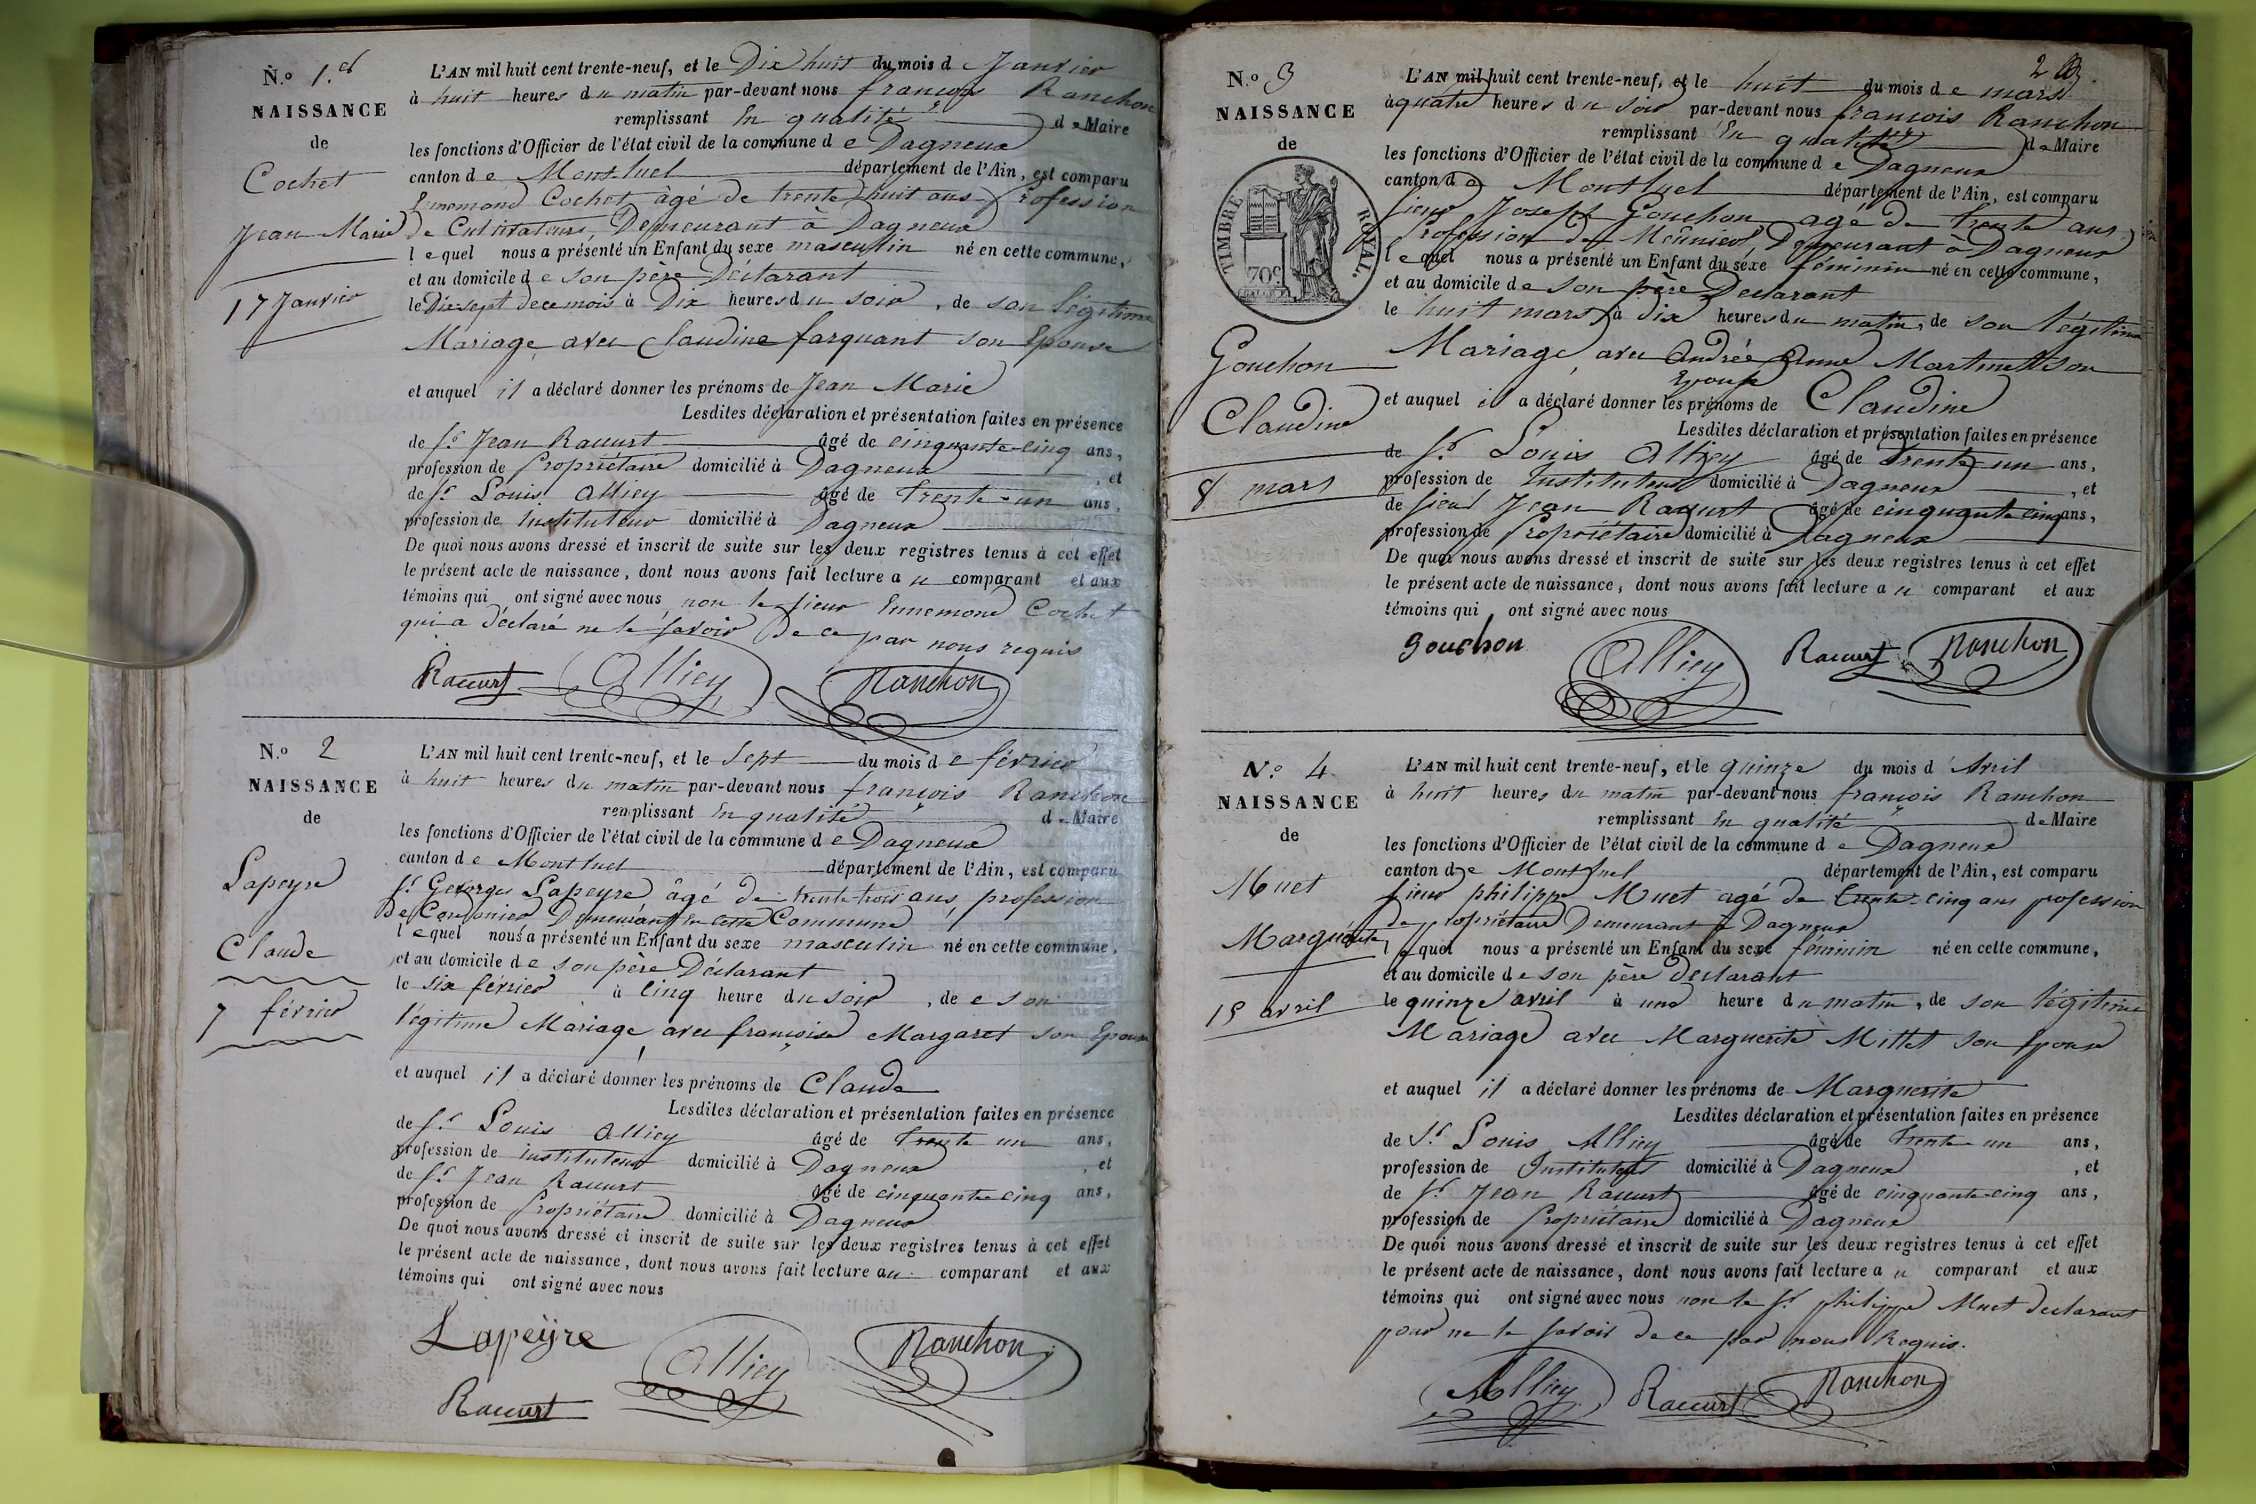 N.o 1.er
NAISSANCE
de
Cochet
Jean Marie
17 Janvier
L'AN mil huit cent trente-neuf, et le Dix huit du mois d Janvier
à huit heures du matin par-devant nous françois Ranchon
remplissant En qualité de Maire
les fonctions d'Officier de l'état civil de la commune d e Dagneux
canton de Montluel département de l'Ain, est comparu
Ennemond Cochet âgé de trente huit ans Profession
de Cultivateur, Demeurant à Dagneux
lequel nous a présenté un Enfant du sexe masculin né en cette commune,
et au domicile de son père Déclarant
le Dix-sept de ce mois à Dix heures du soir, de son légitime
Mariage avec Claudine farquant son Epouse
et auquel il a déclaré donner les prénoms de Jean Marie
Lesdites déclaration et présentation faites en présence
de Sr Jean Racurt âgé de cinquante-cinq ans,
profession de Propriétaire domicilié à Dagneux, et
de Sr Louis Alliey âgé de trente-un ans,
profession de instituteur domicilié à Dagneux
De quoi nous avons dressé et inscrit de suite sur les deux registres tenus à cet effet
le présent acte de naissance, dont nous avons fait lecture au comparant et aux
témoins qui ont signé avec nous non le sieur Ennemond Cochet
qui a déclaré ne le savoir De ce par nous requis
Racurt Alliey Ranchon
N.o 2
NAISSANCE
de
Lapeyre
Claude
7 février
L'AN mil huit cent trente-neuf, et le Sept du mois de février
à huit heures du matin par-devant nous françois Ranchon
remplissant En qualité de Maire
les fonctions d'Officier de l'état civil de la commune d e Dagneux
canton de Montluel département de l'Ain, est comparu
Sr Georges Lapeyre âgé de trente trois ans, profession
de Cordonier Demeurant en cette Commune
lequel nous a présenté un Enfant du sexe masculin né en cette commune,
et au domicile de son père Déclarant
le six février à cinq heure du soir, de e son
légitime Mariage avec françoise Margaret son Epouse
et auquel il a déclaré donner les prénoms de Claude
Lesdites déclaration et présentation faites en présence
de Sr Louis Alliey âgé de trente un ans,
profession de instituteur domicilié à Dagneux, et
de Sr Jean Racurt âgé de cinquante cinq ans,
profession de Propriétaire domicilié à Dagneux
De quoi nous avons dressé et inscrit de suite sur les deux registres tenus à cet effet
le présent acte de naissance, dont nous avons fait lecture au comparant et aux
témoins qui ont signé avec nous
Lapeÿre Alliey Ranchon
Racurt
2
N.o 3
NAISSANCE
de
TIMBRE ROYAL.
70c
Gouchon
Claudine
8 mars
L'AN mil huit cent trente-neuf, et le huit du mois de mars
à quatre heures du soir par-devant nous françois Ranchon
remplissant En qualité de Maire
les fonctions d'Officier de l'état civil de la commune d e Dagneux
canton de Montluel département de l'Ain, est comparu
Sieur Joseph Gouchon agé de trente ans
Profession de Meûnier, Demeurant à Dagneux
lequel nous a présenté un Enfant du sexe féminin né en cette commune,
et au domicile de son père Déclarant
le huit mars à dix heures du matin, de son légitime
Mariage avec Andrée Anne Martinet son
Epouse
et auquel il a déclaré donner les prénoms de Claudine
Lesdites déclaration et présentation faites en présence
de Sr Louis Alliey âgé de trente-un ans,
profession de Instituteur domicilié à Dagneux, et
de Sieur Jean Racurt âgé de cinquante cinq ans,
profession de Propriétaire domicilié à Dagneux
De quoi nous avons dressé et inscrit de suite sur les deux registres tenus à cet effet
le présent acte de naissance, dont nous avons fait lecture au comparant et aux
témoins qui ont signé avec nous
Gouchon Alliey Racurt Ranchon
N.o 4
NAISSANCE
de
Muet
Marguerite
15 avril
L'AN mil huit cent trente-neuf, et le quinze du mois d'Avril
à huit heures du matin par-devant nous françois Ranchon
remplissant En qualité de Maire
les fonctions d'Officier de l'état civil de la commune d e Dagneux
canton de Montluel département de l'Ain, est comparu
Sieur philippe Muet agé de trente-cinq ans profession
de propriétaire Demeurant à Dagneux
lequel nous a présenté un Enfant du sexe féminin né en cette commune,
et au domicile de son père declarant
le quinze avril à une heure du matin, de son légitime
Mariage avec Marguerite Millet son Epouse
et auquel il a déclaré donner les prénoms de Marguerite
Lesdites déclaration et présentation faites en présence
de Sr Louis Alliey âgé de trente-un ans,
profession de Instituteur domicilié à Dagneux, et
de Sr Jean Racurt âgé de cinquante-cinq ans,
profession de Propriétaire domicilié à Dagneux
De quoi nous avons dressé et inscrit de suite sur les deux registres tenus à cet effet
le présent acte de naissance, dont nous avons fait lecture au comparant et aux
témoins qui ont signé avec nous non le Sr philippe Muet declarant
pour ne le savoir de ce par nous Requis.
Alliey Racurt Ranchon